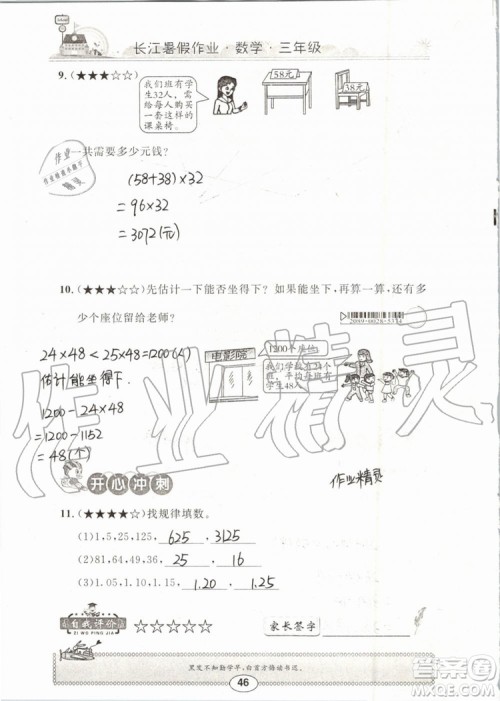 长江暑假作业·数学·三年级
9.(★★★☆☆)
我们班有学
生32人，需
给每人购买
一套这样的
课桌椅。
58元
38元
一共需要多少元钱?
(58+38)×32
=96×32
=3072(元)
10.(★★★☆☆)先估计一下能否坐得下?如果能坐下，再算一算，还有多
少个座位留给老师?
24×48<25×48=1200(个)
估计能坐得下.
1200-24×48
=1200-1152
=48(个)
电影院
1200个座位
我们学校有24个
班，平均每班有学
生48人
开心冲刺
11.(★★★★☆)找规律填数。
(1)1,5,25,125, 625 , 3125 。
(2)81,64,49,36, 25 , 16 。
(3)1.05,1.10,1.15, 1.20 , 1.25
作业精灵
自我评价
ZI WO PING JIA
☆☆☆☆☆
家长签字
黑发不知勤学早,白首方悔读书迟。
46
作业精灵
答案圈